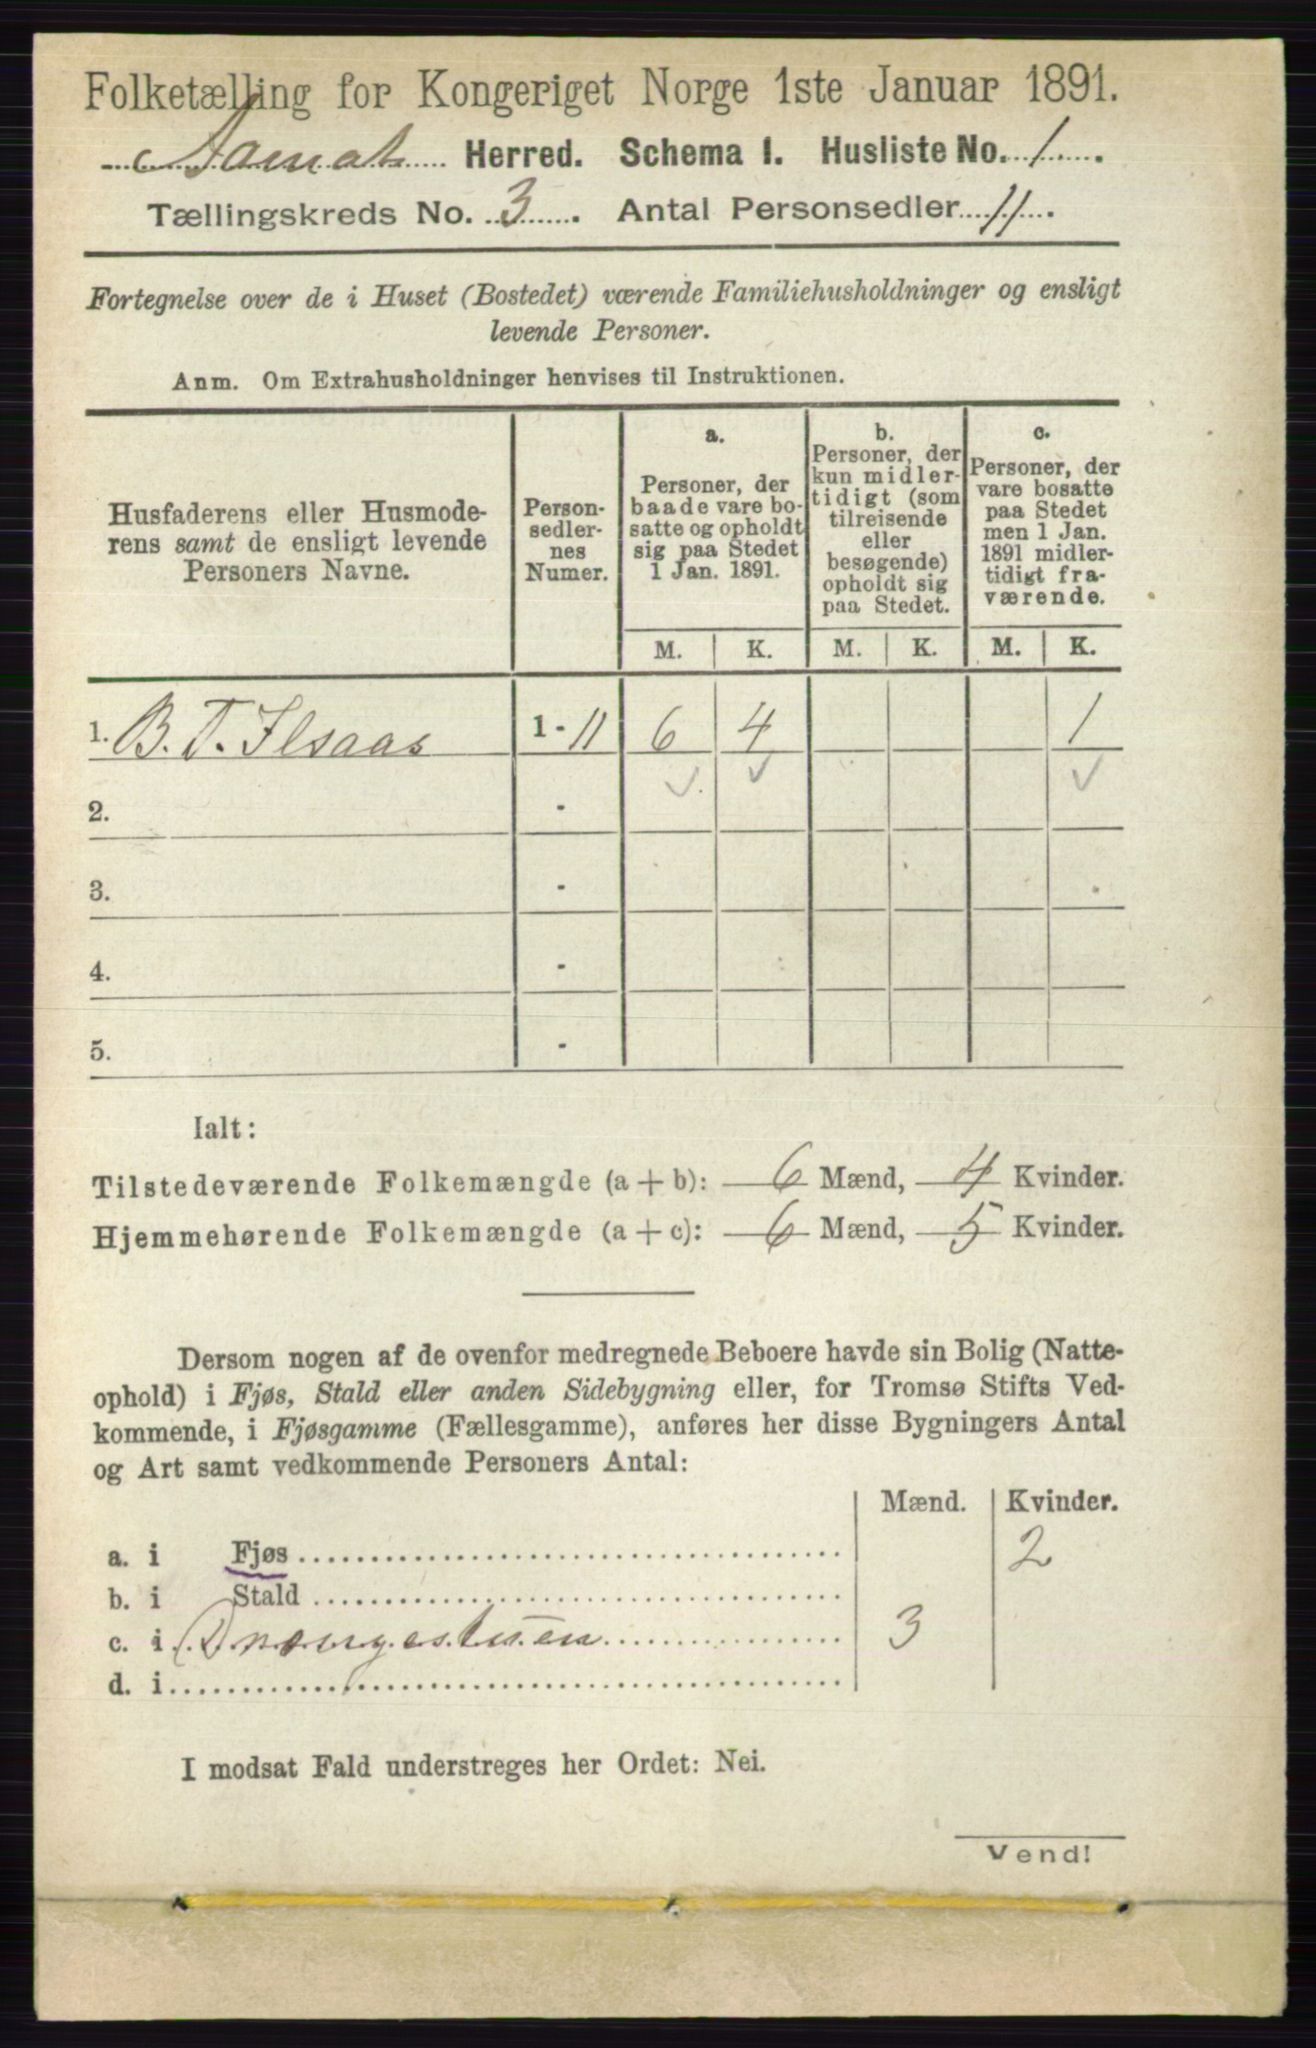 Folketælling for Kongeriget Norge 1ste Januar 1891.
Aamot Herred. Schema I. Husliste No. 1.
Tællingskreds No. 3. Antal Personsedler 11.
Fortegnelse over de i Huset (Bostedet) værende Familiehusholdninger og ensligt
levende Personer.
Anm. Om Extrahusholdninger henvises til Instruktionen.
Husfaderens eller Husmode-
rens samt de ensligt levende
Personers Navne.
Person-
sedler-
nes
Numer.
a.
Personer, der
baade vare bo-
satte og opholdt
sig paa Stedet
1 Jan. 1891.
b.
Personer, der
kun midler-
tidigt (som
tilreisende
eller
besøgende)
opholdt sig
paa Stedet.
c.
Personer, der
vare bosatte
paa Stedet
men 1 Jan.
1891 midler-
tidigt fra-
værende.
M. K. M. K. M. K.
1. B. T. Ilsaas 1 - 11 6 4 1
2. -
3. -
4. -
5. -
Ialt:
Tilstedeværende Folkemængde (a + b): 6 Mænd, 4 Kvinder.
Hjemmehørende Folkemængde (a + c): 6 Mænd, 5 Kvinder.
Dersom nogen af de ovenfor medregnede Beboere havde sin Bolig (Natte-
ophold) i Fjøs, Stald eller anden Sidebygning eller, for Tromsø Stifts Ved-
kommende, i Fjøsgamme (Fællesgamme), anføres her disse Bygningers Antal
og Art samt vedkommende Personers Antal:
Mænd. Kvinder.
a. i Fjøs 2
b. i Stald
c. i Drængestuen 3
d. i
I modsat Fald understreges her Ordet: Nei.
Vend!